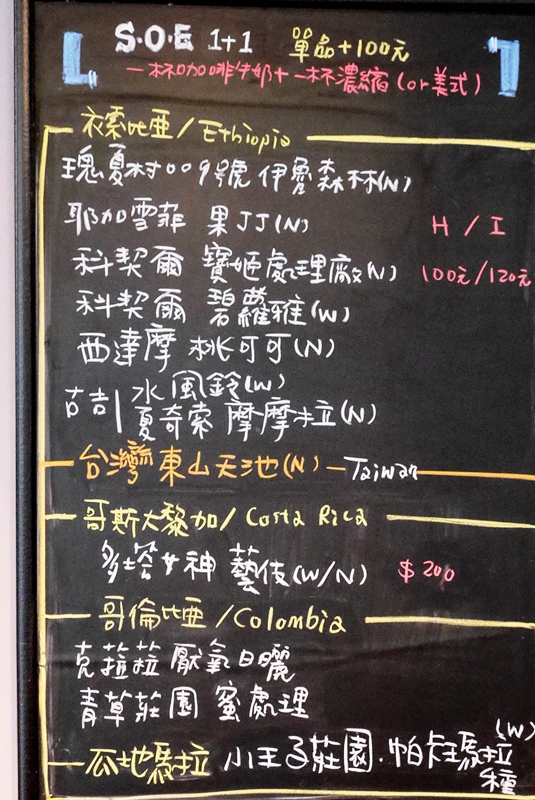 S.O.E 1+1 單品+100元
一杯咖啡牛奶+一杯濃縮(or美式)
衣索比亞/Ethiopia
瑰夏村009號 伊魯森林(N)
耶加雪菲 果丁丁(N) H / I
科契爾 寶姬處理廠(N) 100元/120元
科契爾 碧蘿雅(W)
西達摩 桃可可(N)
古吉 水風鈴(W)
夏奇索 摩摩拉(N)
台灣 東山天池(N) - Taiwan
哥斯大黎加/Costa Rica
多塔女神 藝伎(W/N) $200
哥倫比亞/Colombia
克菈菈 厭氧日曬
青草莊園 蜜處理
瓜地馬拉 小王子莊園.帕卡瑪拉種(W)